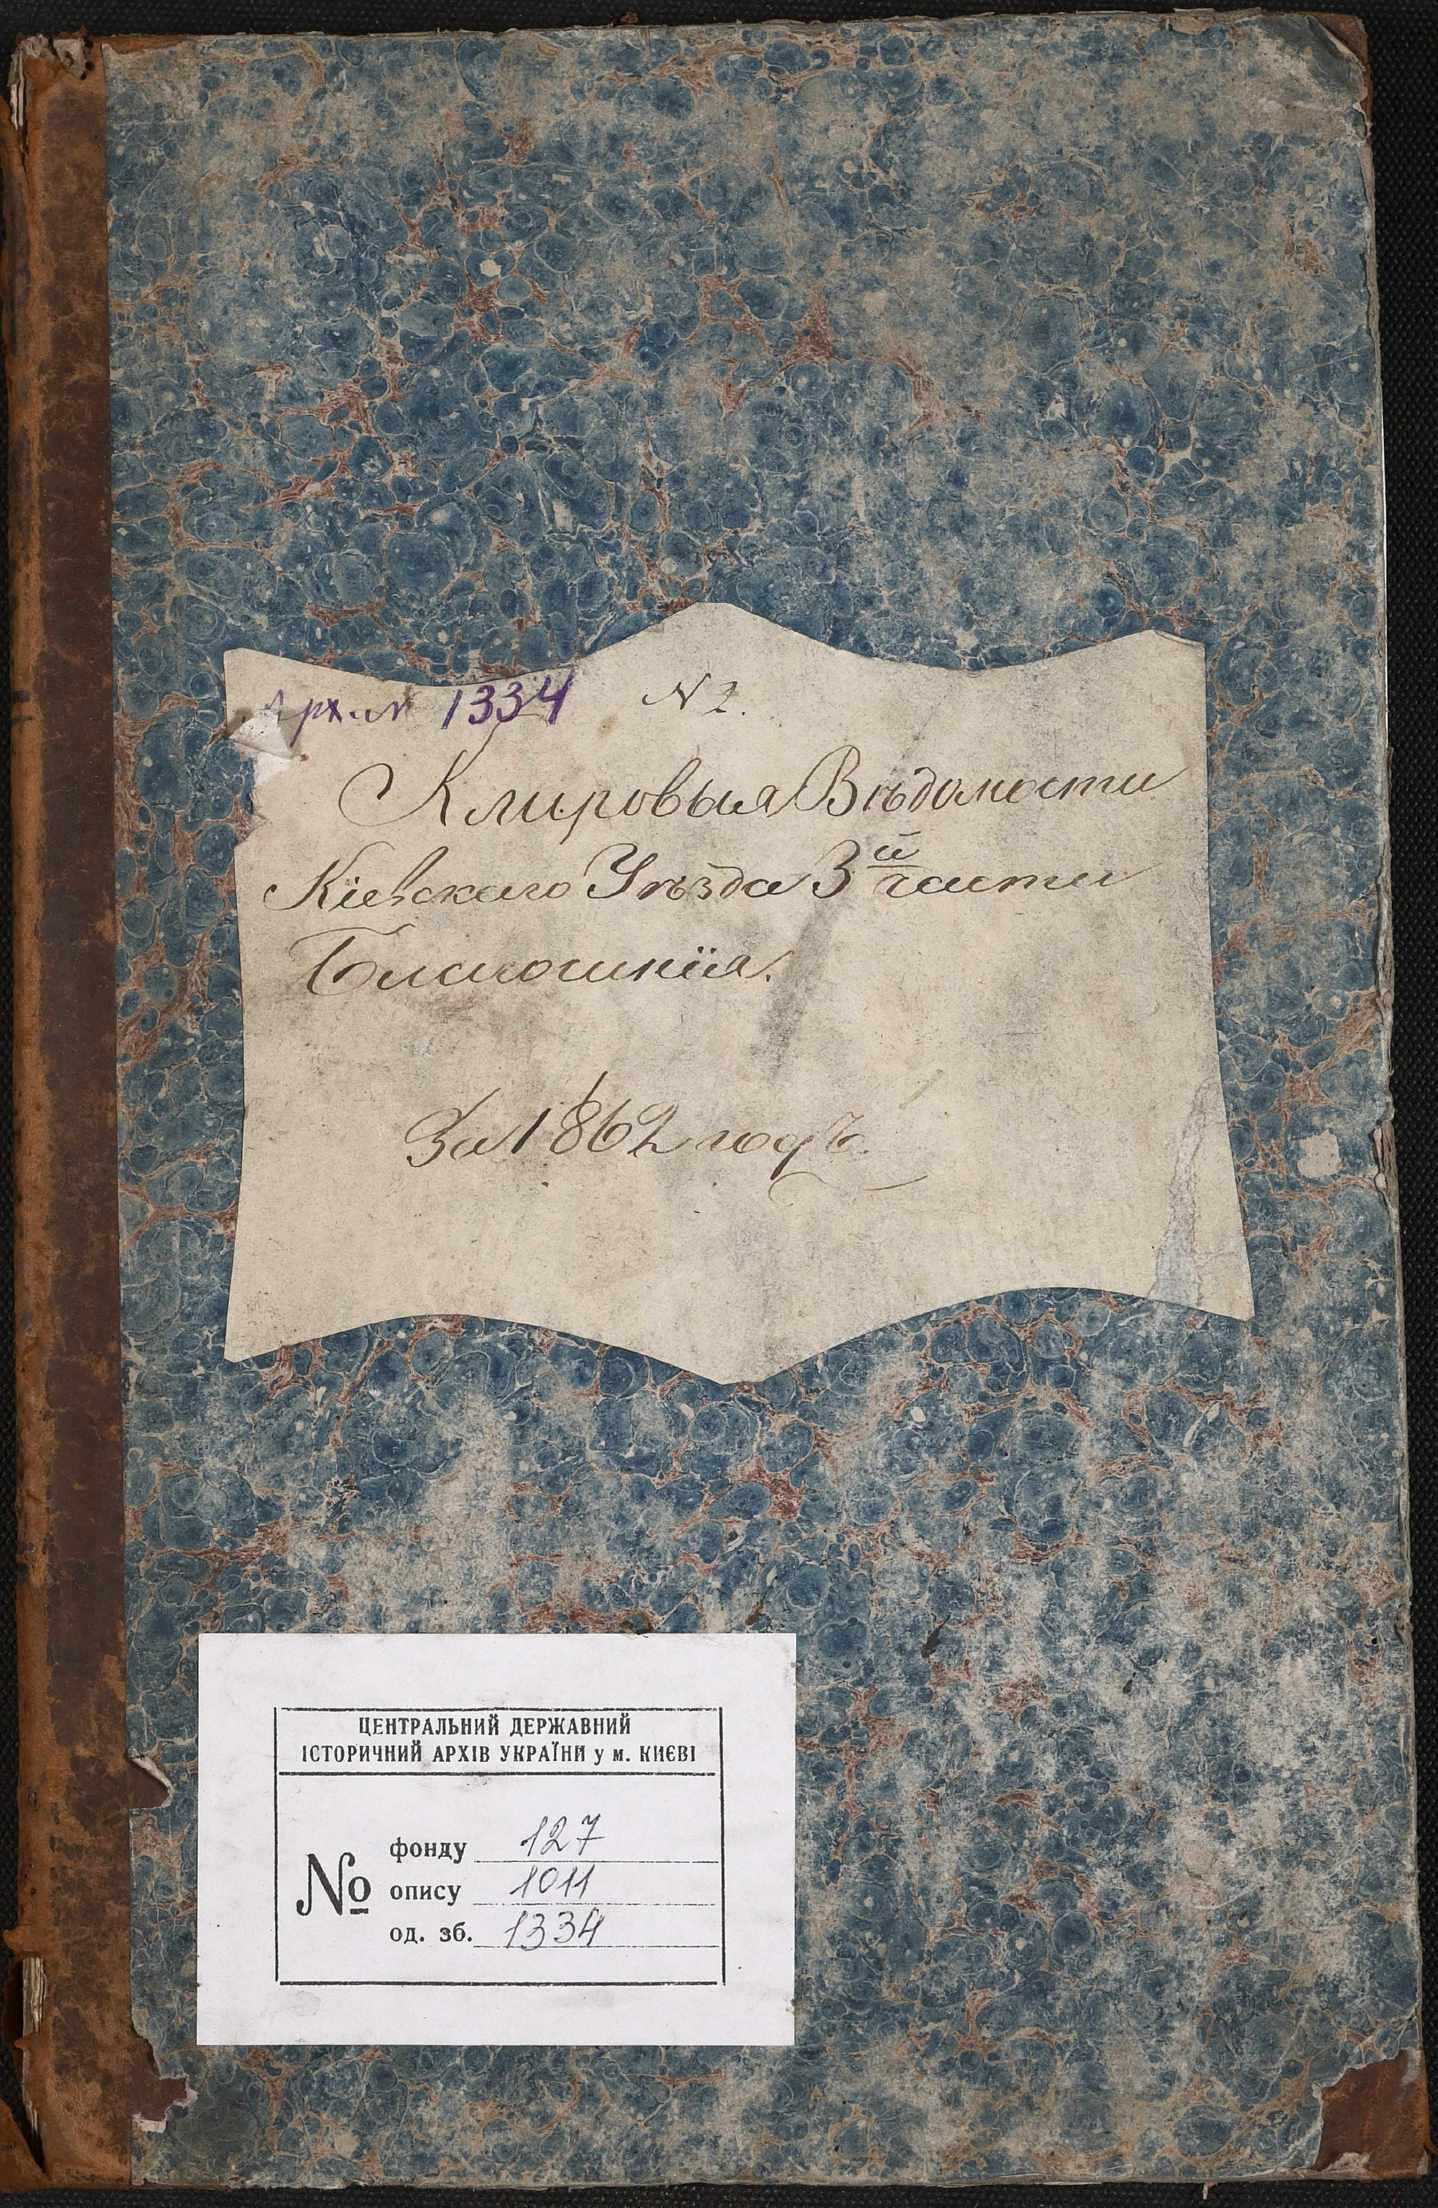 Арх. № 1334
№ 2.
Клировыя Вѣдомости
Кіевскаго Уѣзда 3й части
Благочинія.
За 1862 годъ.
ЦЕНТРАЛЬНИЙ ДЕРЖАВНИЙ
ІСТОРИЧНИЙ АРХІВ УКРАЇНИ у м. КИЄВІ
№
фонду 127
опису 1011
од. зб. 1334